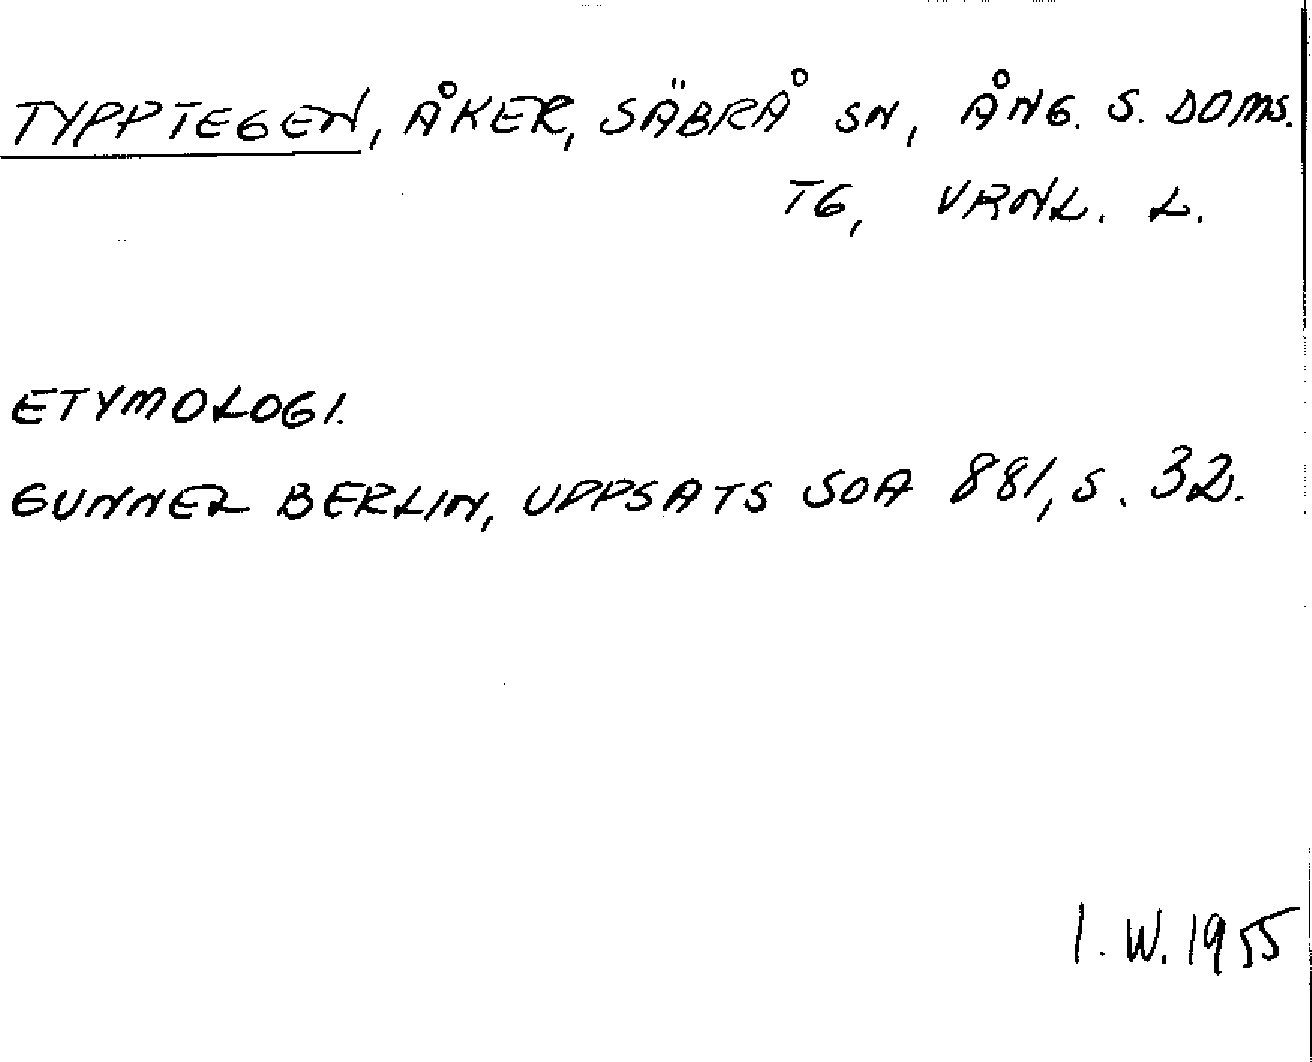 TYPPTEGEN, ÅKER, SÄBRÅ SN, ÅNG. S. DOMS.
TG, VRNL. L.
ETYMOLOGI.
GUNNEL BERLIN, UPPSATS SOA 881, S. 32.
I. W. 1955